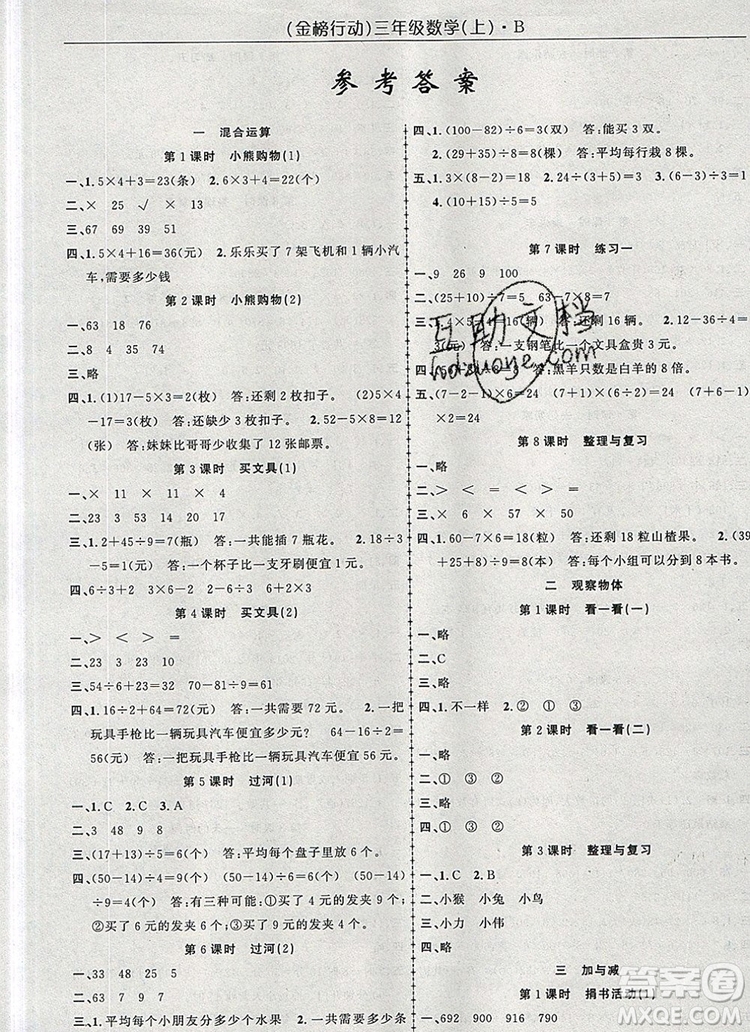 (金榜行动)三年级数学(上)·B
参考答案
一 混合运算
第1课时 小熊购物(1)
一、1.5×4+3=23(条) 2.6×3+4=22(个)
二、× 25 √ × 13
三、67 69 39 51
四、1.5×4+16=36(元) 2.乐乐买了7架飞机和1辆小汽
车,需要多少钱
第2课时 小熊购物(2)
一、63 18 76
二、8 74 35 34
三、略
四、1.(1)20-6×3=2(枚) 答:还剩2枚扣子。 (2)5×4
-17=3(枚) 答:还缺少3枚扣子。 2.52-5×8=12
(张) 答:妹妹比哥哥少收集了12张邮票。
第3课时 买文具(1)
一、× 11 × 11 × 4
二、8 23 3 53 50 47
三、1.2+45÷9=7(瓶) 答:一共能插7瓶花。 2.18÷
3-5=1(元) 答:一个杯子比一支牙刷便宜1元。
四、6÷3+2 3×6-2 6-2×3 6÷2×3
第4课时 买文具(2)
一、> < > =
二、23 3 15 24
三、54÷6+23=32 70-81÷9=61
四、1.64+64÷8=72(元) 答:一共需要72元。 2.一把
玩具手枪比一辆玩具汽车便宜多少元? 64-16÷2=
56(元) 答:一把玩具手枪比一辆玩具汽车便宜56元。
第5课时 过河(1)
一、1.C 2.C 3.A
二、3 48 9 8
三、(17+13)÷5=6(个) 答:平均每个盘子里放6个。
四、(50-14)÷6=6(个) (50-14)÷4=9(个) (50-14)
÷9=4(个) 答:有三种可能:①买了4元的发夹9个;
②买了6元的发夹6个;③买了9元的发夹4个。
第6课时 过河(2)
一、33 48 25 23
二、97 3 7 3
四、1.(100-82)÷6=3(双) 答:能买3双。
2.(29+35)÷8=8(棵) 答:平均每行栽8棵。
五、1.3×(9-1)=24 2.24÷(3+3)=4 3.(6-3)÷3=
1 4.(10+8)÷(5-3)=9
第7课时 练习一
一、9 26 9 100
二、(25+10)÷7=5 63-7×8=7
答:还剩16辆。
答:一支钢笔比一个文具盒贵3元。
答:黑羊只数是白羊的8倍。
×2=24
第8课时 整理与复习
一、略
二、> < = < > =
三、× 6 × 57 × 50
四、1.60-7×6=18(粒) 答:还剩18粒山楂果。 2.(39
+25)÷8=8(本) 答:每个小组可以分到8本书。
二 观察物体
第1课时 看一看(一)
一、略
二、C
三、略
四、1.不一样 2.② ① ③
第2课时 看一看(二)
一、略
二、① ③ ②
三、略
四、② ① ③ ③
第3课时 整理与复习
一、1.C 2.B
二、小猴 小兔 小鸟
三、小力 小伟
四、略
三 加与减
第1课时 捐书活动(1)
一、692 900 916 790
互助文档
hdzuoye.com
答案圈